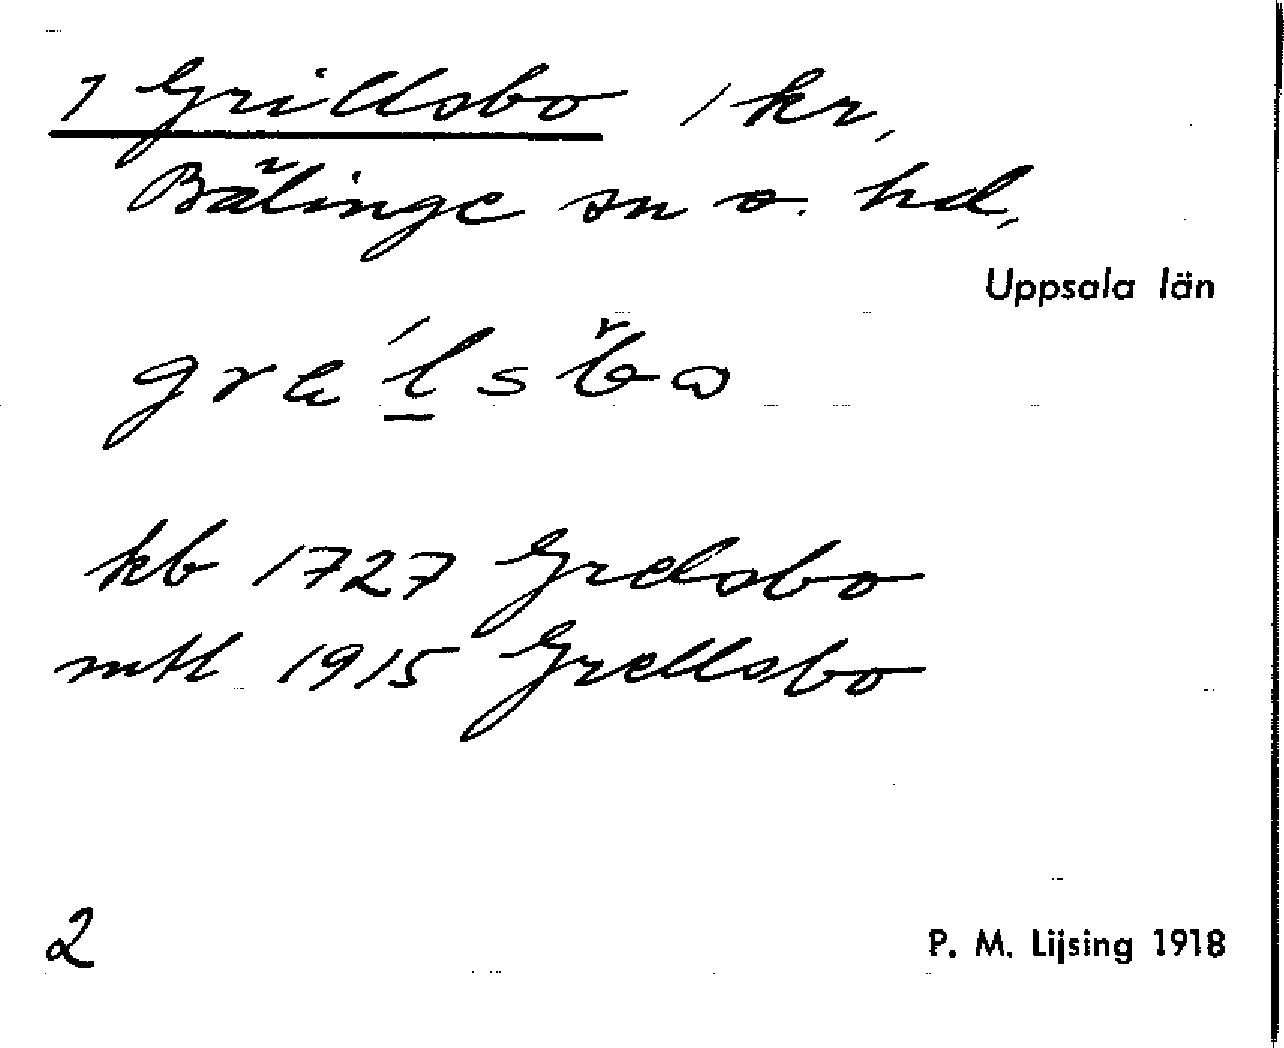 1 Grillsbo 1 kr,
Bälinge sn o. hd,
Uppsala län
kb 1727 Grelsbo
mtl 1915 Grellsbo
2
P. M. Lijsing 1918